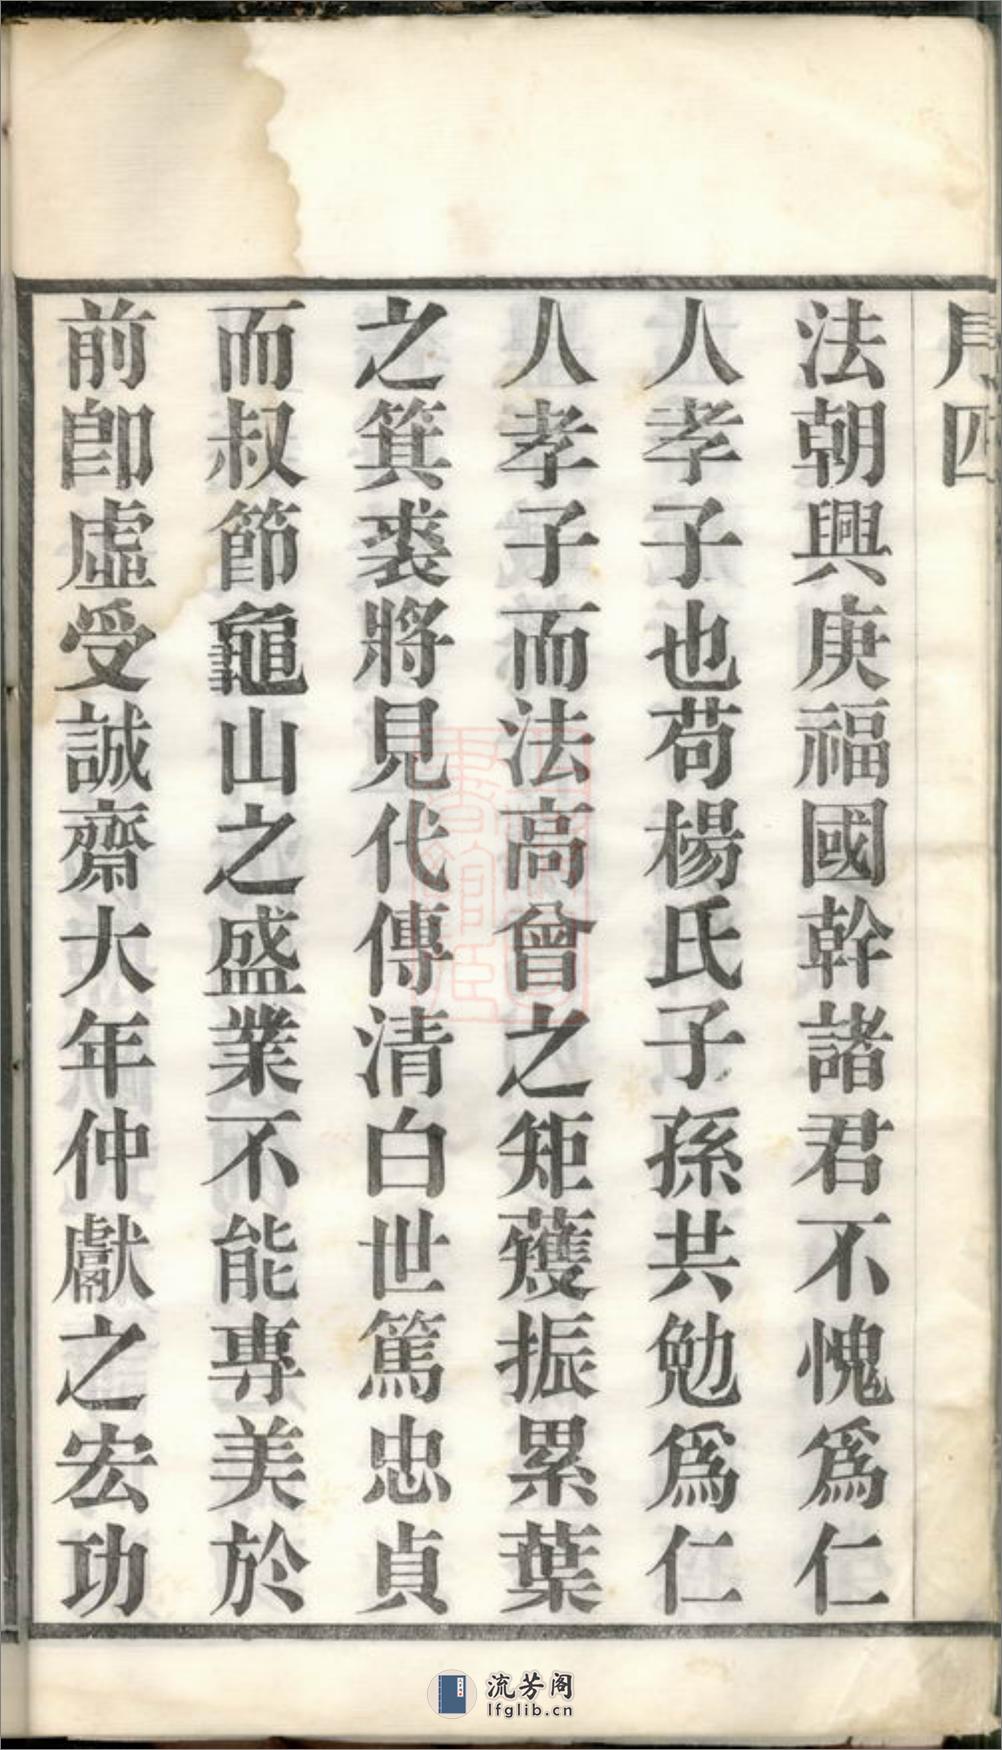 四
法朝興庚福國幹諸君不愧爲仁
人孝子也苟楊氏子孫共勉爲仁
人孝子而法高曾之矩矱振累葉
之箕裘將見代傳清白世篤忠貞
而叔節龜山之盛業不能專美於
前卽虛受誠齋大年仲獻之宏功
流芳阁
lfglib.cn